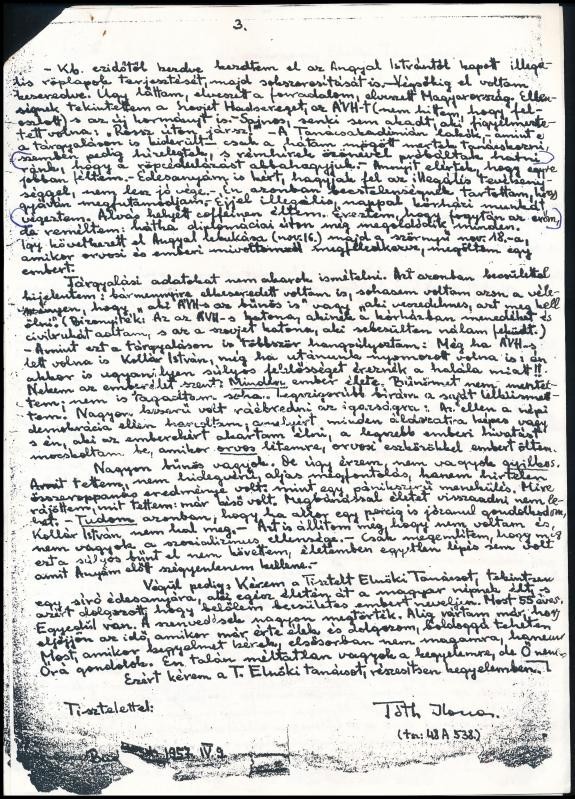 3.
– Kb. ezidőtől kezdve kezdtem el az Angyal Istvántól kapott illegá-
lis röplapok terjesztését, majd sokszorosítását is. – Végsőkig el voltam
keseredve. Úgy láttam, elveszett a forradalom, elveszett Magyarország. Ellen-
ségnek tekintettem a Szovjet Hadsereget, az ÁVH-t (nem tudtam, hogy fel-
oszlott) s az új kormányt is. – Sajnos, senki sem akadt, aki figyelmezte-
tett volna: „Rossz úton jársz!” – A Tanácsakadémián lakók, amint
a tárgyaláson is kiderült – csak a hátam mögött mertek tanácskozni,
szemben pedig hízelegtek, s
ránk, hogy a röpcédulázást abbahagyjuk. – Amint elértek, hogy egyre
jobban féltem. – Édesanyám is kért, hagyjak fel az illegális tevékeny-
séggel, nem lesz jó vége. – Én azonban becstelenségnek tartottam, hogy
gyáván megfutamodjam. – Éjjel illegális, nappal kórházi munkát
végeztem. Alvás helyett coffeinen éltem. Éreztem, hogy fogytán az erőm,
de reméltem: hátha diplomáciai úton még megoldódik minden.
Így következett el Angyal lebukása (nov. 16.) majd a szörnyű nov. 18.-a,
amikor orvosi és emberi mivoltomról megfeledkezve, megöltem egy
embert.
Tárgyalási adatokat nem akarok ismételni. Azt azonban becsülettel
kijelentem: bármennyire elkeseredett voltam is, sohasem voltam azon a véle-
ményen, hogy „aki ÁVH-s az bűnös is” vagy „aki veszedelmes, azt meg kell
ölni”. (Bizonyíték: Az az ÁVH-s katona, akinek a kórházban menedéket és
civilruhát adtam, s az a szovjet katona, aki sebesülten nálam feküdt.)
– Amint ezt a tárgyaláson is többször hangsúlyoztam: Még ha ÁVH-s
lett volna is Kollár István, még ha utánunk nyomozott volna is: én
akkor is ugyanilyen súlyos felelősséget éreznék a halála miatt!!
Nekem az emberélet szent: Minden ember élete. Bűnömet nem mentet-
tem, nem is tagadtam soha. Legszigorúbb bírám a saját lelkiismere-
tem. Nagyon keserű volt ráébredni az igazságra: Az ellen a népi
demokrácia ellen harcoltam, amelyért minden áldozatra képes vagyok
s én, aki az emberekért akartam élni, a legszebb emberi hivatást
mocskoltam be, amikor orvos létemre, orvosi eszközökkel embert öltem.
Nagyon bűnös vagyok. De úgy érzem, nem vagyok gyilkos.
Amit tettem, nem hidegvérű aljas megfontolás, hanem hirtelen
összeroppanás eredménye volt, mint egy pánikszerű menekülés. Mire
rájöttem, mit tettem: már késő volt. Megbánással életet visszaadni nem le-
het. – Tudom azonban, hogy ha akkor egy percig is józanul gondolkodom,
Kollár István, nem hal meg. – Azt is állítom még, hogy nem voltam és,
nem vagyok a szocializmus ellensége. – Csak megemlítem, hogy míg
ezt a súlyos bűnt el nem követtem, életemben egyetlen lépés sem volt
amit Anyám előtt szégyenlenem kellene. –
Végül pedig: Kérem a Tisztelt Elnöki Tanácsot, tekintsen
egy síró édesanyára, aki egész életén át a magyar népnek élt, –
azért dolgozott, hogy belőlem becsületes embert neveljen. Most 55 éves.
Egyedül van. A szenvedések nagyon megtörték. Alig vártam már, hogy
eljöjjön az idő, amikor már érte élek és dolgozom, boldoggá tehetem
Most, amikor kegyelmet kérek, elsősorban nem magamra, hanem
Őrá gondolok. Én talán méltatlan vagyok a kegyelemre, de Ő nem –
Ezért kérem a T. Elnöki tanácsot, részesítsen kegyelemben.
Tisztelettel:
Tóth Ilona.
(tsz: 48 A 538.)
1957. IV. 9.